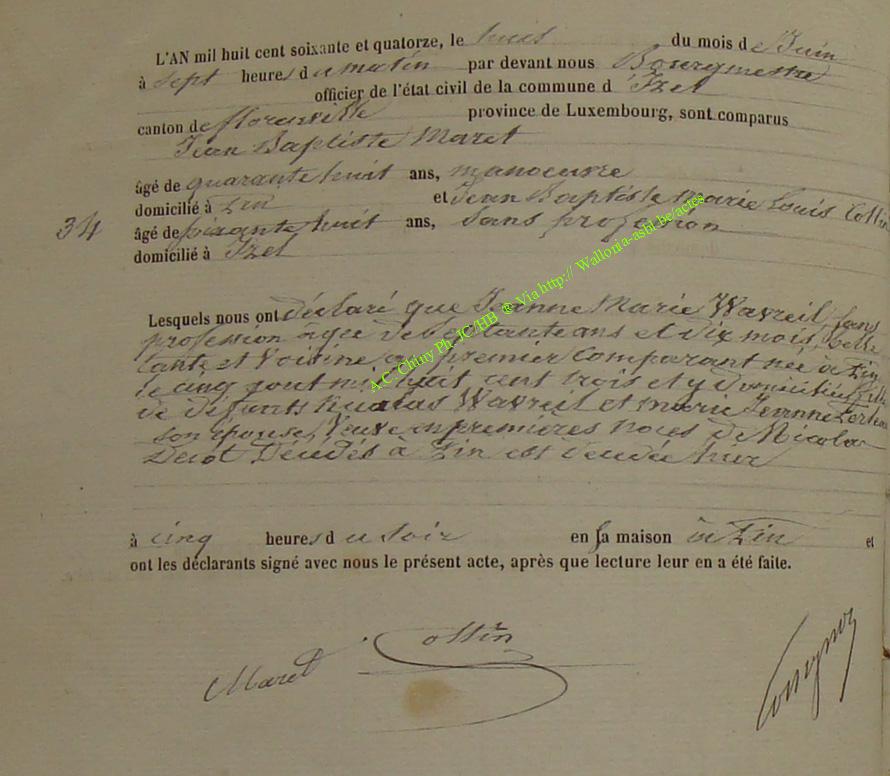 L'AN mil huit cent soixante et quatorze, le huit du mois de Juin
à sept heures du matin par devant nous Bourgmestre
officier de l'état civil de la commune d'Izel
canton de florenville province de Luxembourg, sont comparus
Jean Baptiste Maret
âgé de quarante huit ans, manoeuvre
domicilié à Pin et Jean Baptiste Marie Louis Collin
34 âgé de soixante huit ans, sans profession
domicilié à Izel
Lesquels nous ont déclaré que Jeanne Marie Wavreil, sans
profession âgée de septante ans et dix mois, belle
tante et Voisine du premier Comparant née à Pin
le cinq aout mil huit cent trois et y domiciliée fille
de défunts Nicolas Wavreil et Marie Jeanne
son épouse, Veuve en premières noces de Nicolas
Décédés à Pin est décédée hier
à cinq heures du soir en sa maison à Pin et
ont les déclarants signé avec nous le présent acte, après que lecture leur en a été faite.
Maret Collin
A.C. Chiny Ph. JC/HB ® Via http:// Wallonia-asbl.be/actes